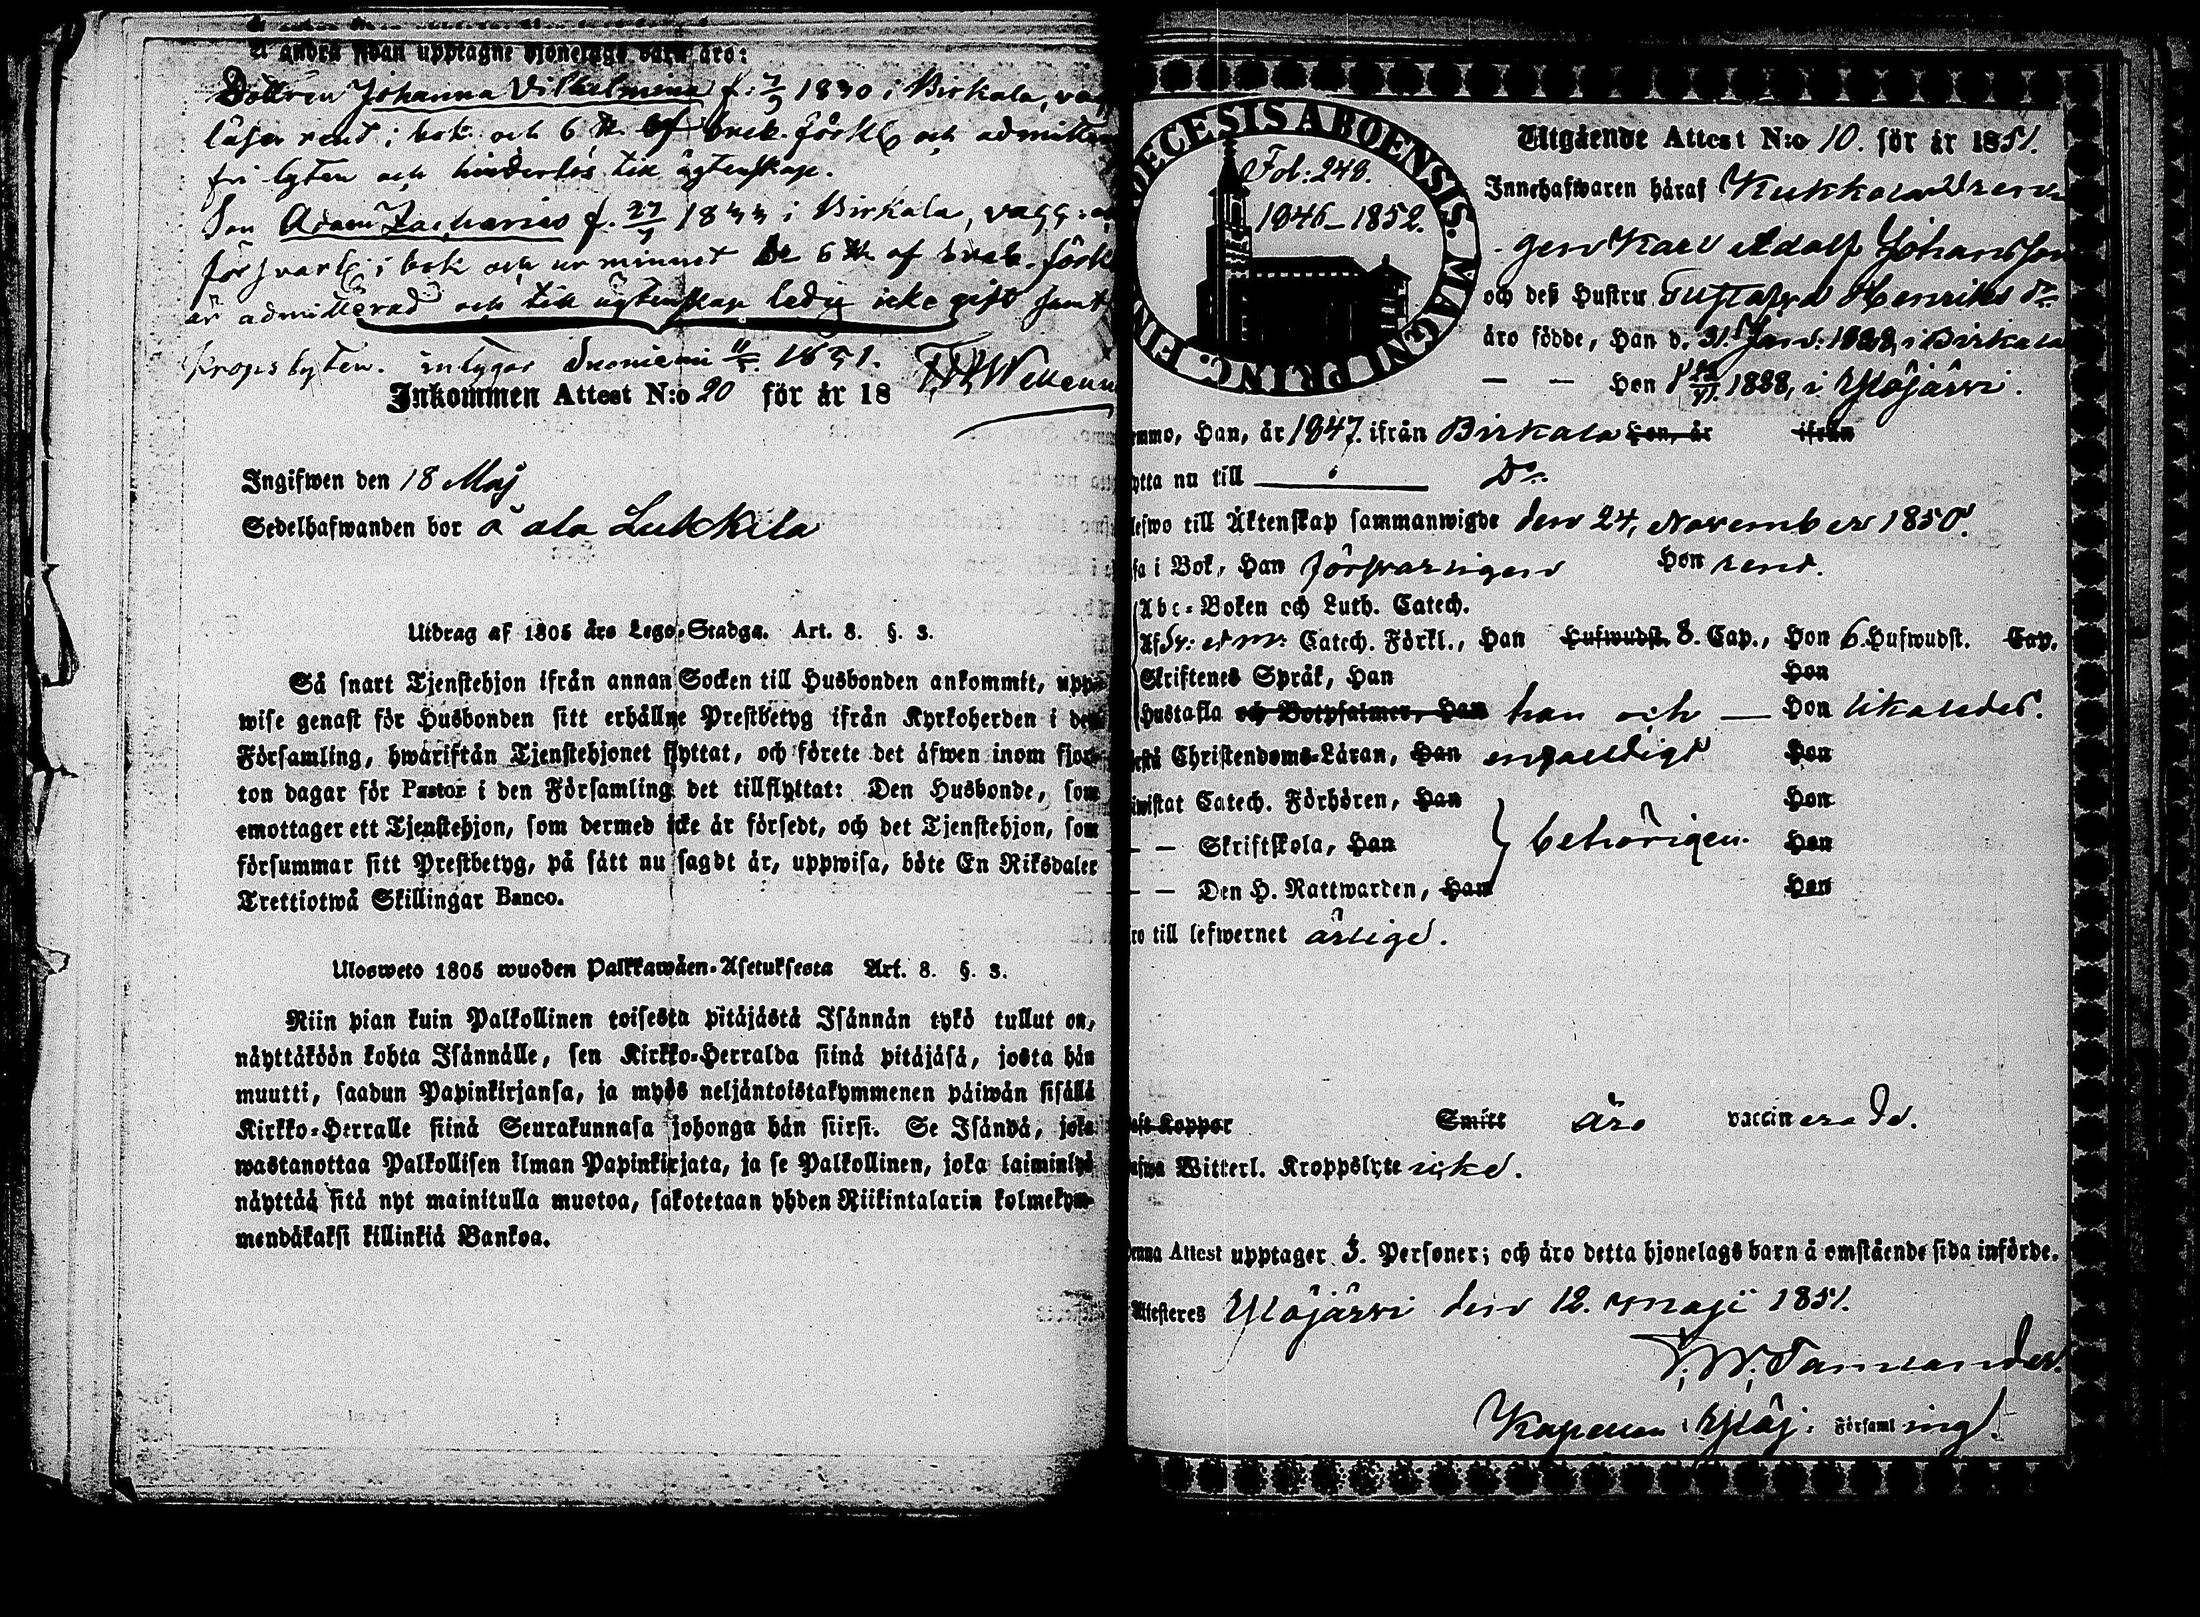 å andra sidan upptagne hjonelags barn äro:
Dottren Johanna Vilhelmina f. 7/9 1830 i Birkala, va
läser rent i bok och 6 H. af Sveb. förkl och admitte
fri lyten och hinderlös till ägtenskap.
Son Adam Zacharias f. 27/7 1833 i Birkala, vacc:
försvarl i bok och ur minnet de 6 H. af Sveb. förkl
är admitterad och till ägtenskap ledig icke gift samt
kropslyten. intygar Suoniemi 1851.
Inkommen Attest N:o 20 för år 18
Ingifwen den 18 Maj
Sedelhafwanden bor å ala Lukkila
Utdrag af 1805 års Lego-Stadga. Art. 8. §. 3.
Så snart Tjenstehjon ifrån annan Socken till Husbonden ankommit, upp-
wise genast för Husbonden sitt erhållne Prestbetyg ifrån Kyrkoherden i den
Församling, hwarifrån Tjenstehjonet flyttat, och förete det äfwen inom fjor-
ton dagar för Pastor i den Församling det tillflyttat: Den Husbonde, som
emottager ett Tjenstehjon, som dermed icke är försedt, och det Tjenstehjon, som
försummar sitt Prestbetyg, på sätt nu sagdt är, uppwisa, böte En Riksdaler
Trettiotwå Skillingar Banco.
Ulosweto 1805 wuoden Palkkawäen-Asetuksesta Art. 8. §. 3.
Niin pian kuin Palkollinen toisesta pitäjästä Isännän tykö tullut on,
näyttäköön kohta Isännälle, sen Kirkko-Herralda siinä pitäjäsä, josta hän
muutti, saadun Papinkirjansa, ja myös neljäntoistakymmenen päiwän sisällä
Kirkko-Herralle siinä Seurakunnasa johonga hän siirsi. Se Isändä, joka
wastanottaa Palkollisen ilman Papinkirjata, ja se Palkollinen, joka laiminlyö
näyttää sitä nyt mainitulla muotoa, sakotetaan yhden Riikintalarin kolmekym-
mendäkaksi killinkiä Bankoa.
DIOECESIS ABOENSIS. MAGNI PRINC. FIN
Fol: 248.
1846–1852.
Utgående Attest N:o 10. för år 1851.
Innehafwaren häraf Kukkola Dren-
gen Karl Adolf Johansson
och deß Hustru Gustafva Henriks dr
äro födde, Han d. 31. Jan. 1828, i Birkala
— — Hon 1828, i Ylöjärvi.
ommo, Han, år 1847. ifrån Birkala Hon, år ifrån
ytta nu till — Do.
lefwo till Äktenskap sammanwigde den 24. November 1850.
sa i Bok, Han försvarligen Hon rent.
Abc-Boken och Luth. Catech.
Af Catech. Förkl., Han Hufwudst. 8. Cap., Hon 6. Hufwudst. Cap.
Skriftenes Språk, Han Hon
Hustafla och Botpsalmer, Han han och — Hon likaledes.
Christendoms-Läran, Han enfaldigt Hon
wistat Catech. Förhören, Han Hon
— — Skriftskola, Han behörigen. Hon
— — Den H. Nattwarden, Han Hon
ro till lefwernet ärlige.
aft Koppor Smitt äro vaccinerade.
afwa Witterl. Kroppslyte icke.
Denna Attest upptager 3. Personer; och äro detta hjonelags barn å omstående sida införde.
Attesteres Ylöjärvi den 12. Maji 1851.
Kapellan i Ylöj: Församling.